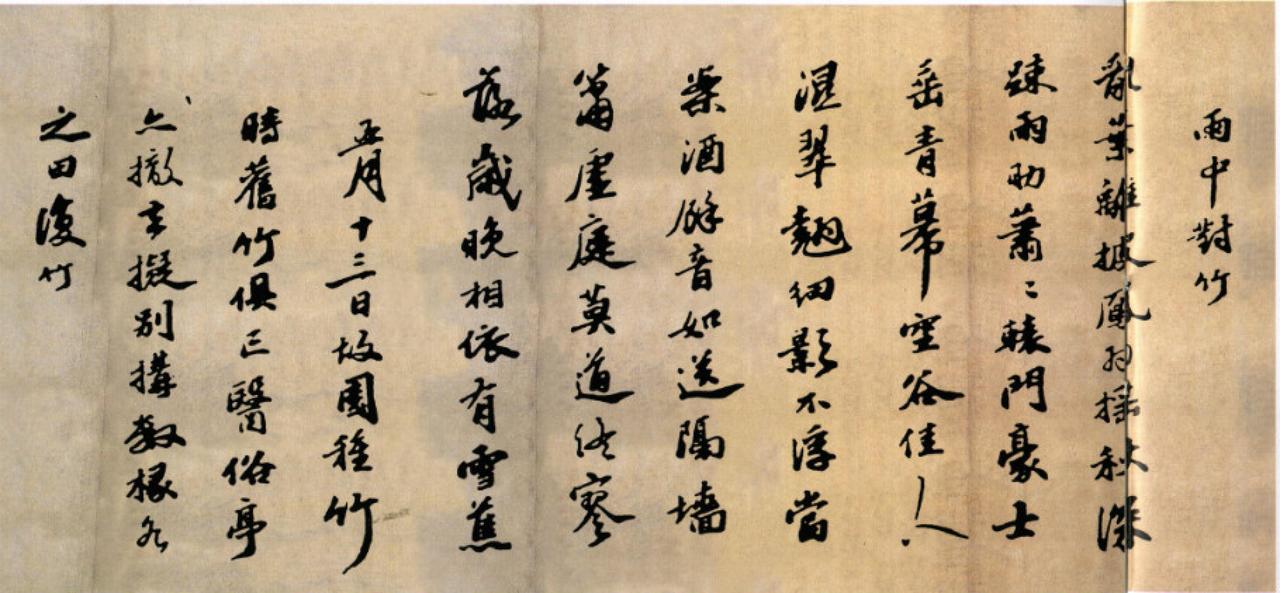 雨中對竹
亂葉離披鳳羽搖秋深
疎雨助蕭〻轅門豪士
垂青幕空谷佳人
濕翠翹細影不浮當
酒餘音如送隔墻
簫虛庭莫道終寥
落歲晚相依有雪蕉
五月十三日故園種竹
時舊竹俱亡醫俗亭
亦撤去擬別搆數椽名
之曰復竹